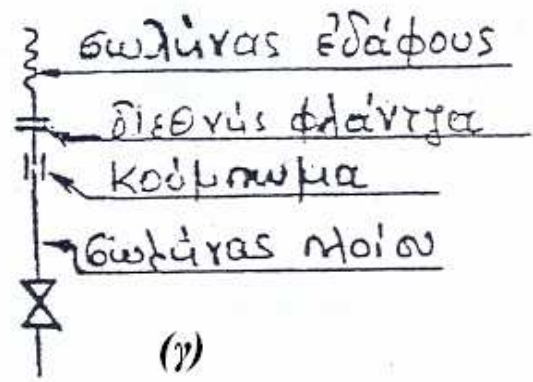 σωλήνας ἐδάφους
διεθνής φλάντζα
κούμπωμα
σωλήνας πλοίου
(γ)